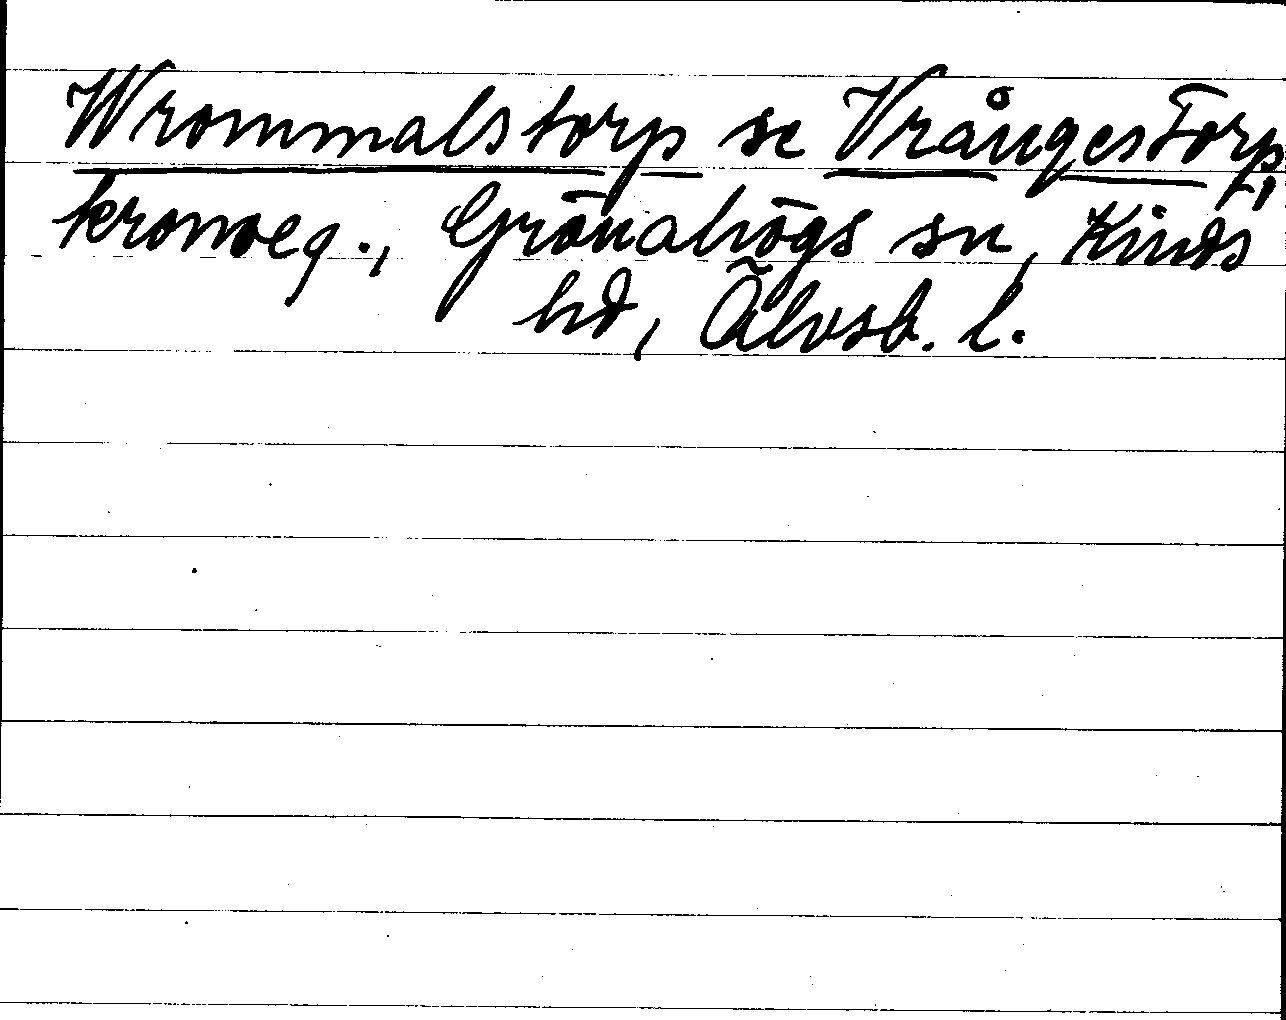 Wrommalstorp se Vrångestorp,
kronoeg., Grönahögs sn, Kinds
hd, Älvsb. l.